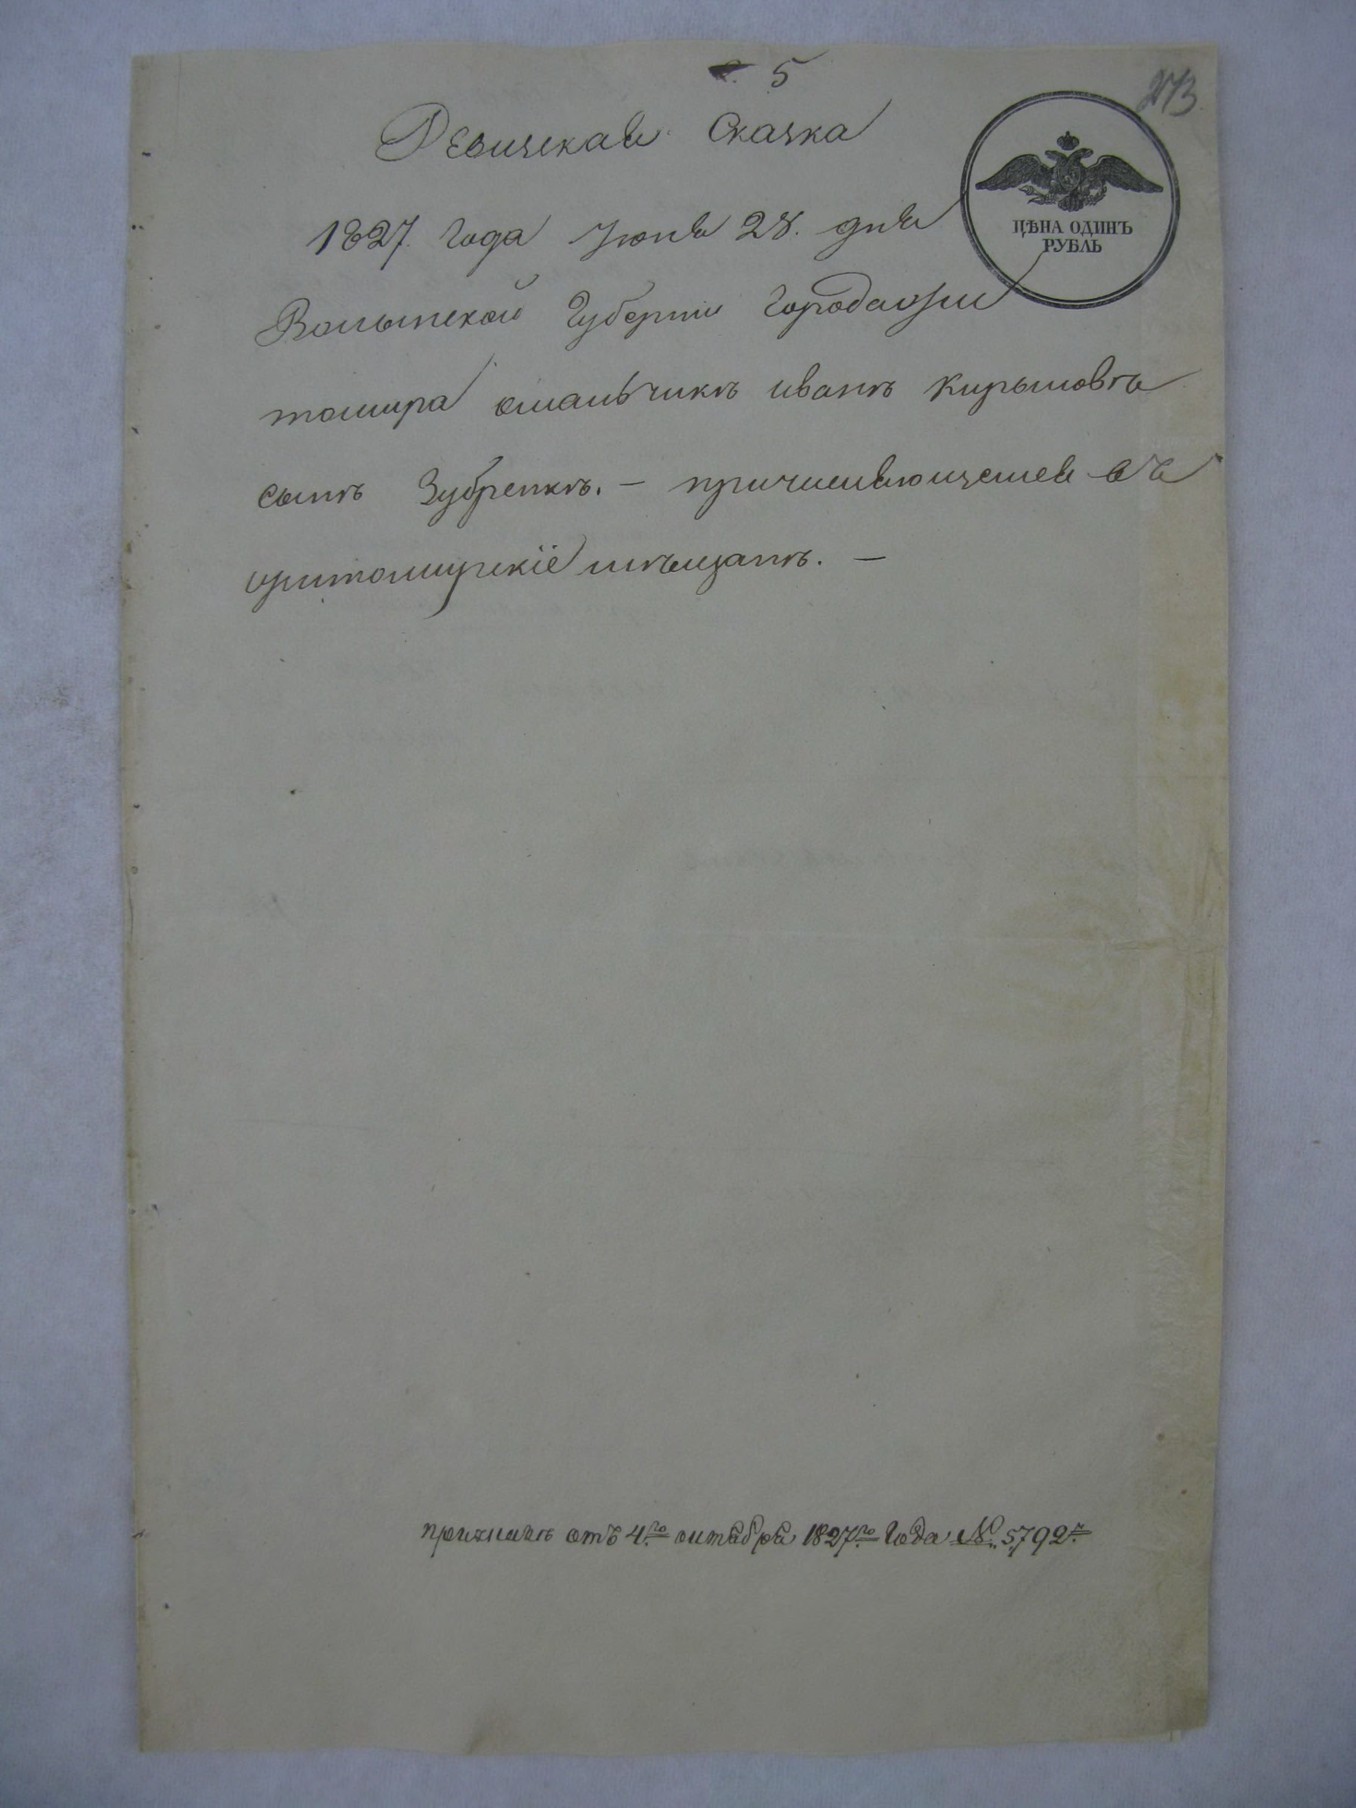 5
273
Ревизская Сказка
ЦѢНА ОДИНЪ
РУБЛЬ
1827. Года Июня 28. дня
Волынской Губернии Города Жи
томира Иванъ Кирыловъ
сынъ Зубренкъ. — причисляющемся въ
житомирскіе мѣщанъ. —
отъ 4го октября 1827го Года №. 5792.